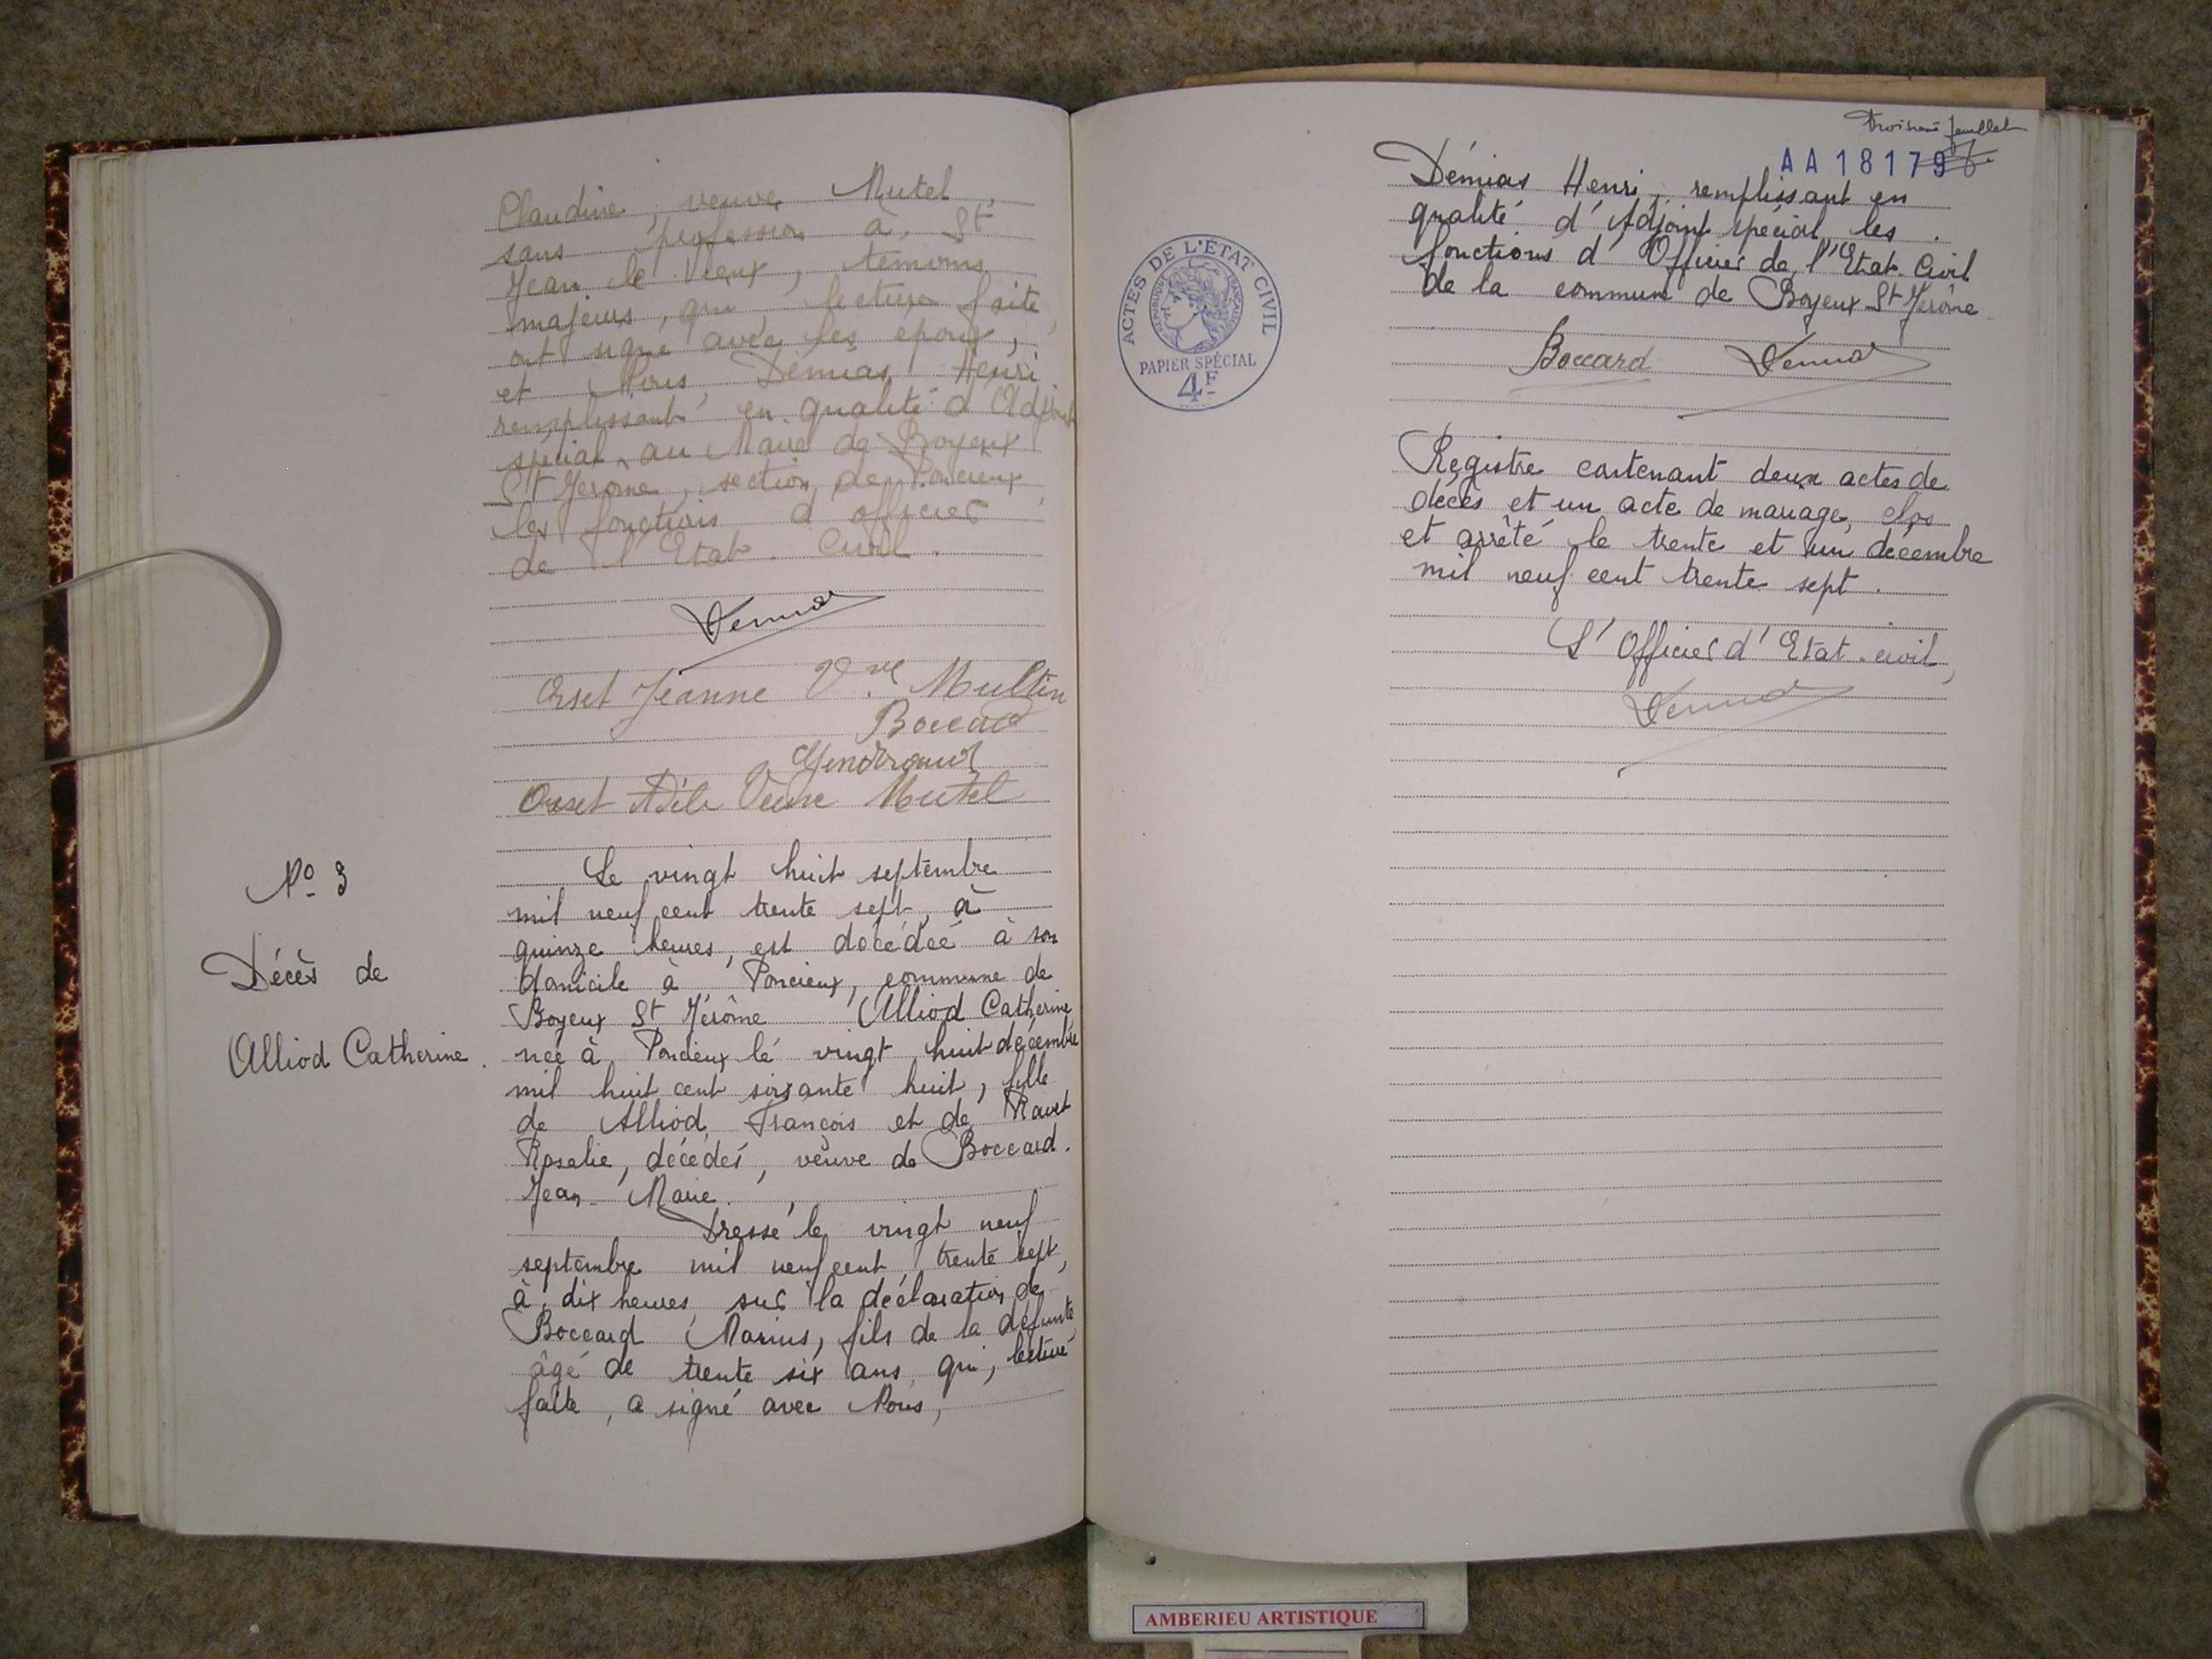 Claudine, veuve Mutel,
sans profession à St
Jean le Vieux, témoins
majeurs, qui, lecture faite,
ont signé avec les époux,
et Nous, Démias Henri
remplissant en qualité d'Adjoint
spécial au Maire de Boyeux
St Jérome, section de Poncieux
les fonctions d'officier
de l'Etat. Civil.
Orset Jeanne Vve Multin
Boccard
Orset Adèle Veuve Mutel
No 3
Décès de
Alliod Catherine.
Le vingt huit septembre
mil neuf cent trente sept, à
quinze heures, est décédée à son
domicile à Poncieux, commune de
Boyeux St Jérôme Alliod Catherine
née à Poncieux le vingt huit décembre
mil huit cent soixante huit, fille
de Alliod François et de Ravet
Rosalie, décédés, veuve de Boccard.
Jean-Marie.
Dressé le vingt neuf
septembre mil neuf cent trente sept,
à dix heures, sur la déclaration de
Boccard Marius, fils de la défunte,
âgé de trente six ans, qui, lecture
faite, a signé avec Nous,
troisième feuillet
AA 18179
Démias Henri, remplissant en
qualité d'Adjoint spécial les
fonctions d'Officier de l'Etat-Civil
de la commune de Boyeux St Jérôme
ACTES DE L'ÉTAT CIVIL
RÉPUBLIQUE FRANÇAISE
PAPIER SPÉCIAL
4F
Boccard
Registre contenant deux actes de
décès et un acte de mariage, clos
et arrêté le trente et un décembre
mil neuf cent trente sept.
L'Officier d'Etat-civil,
AMBERIEU ARTISTIQUE